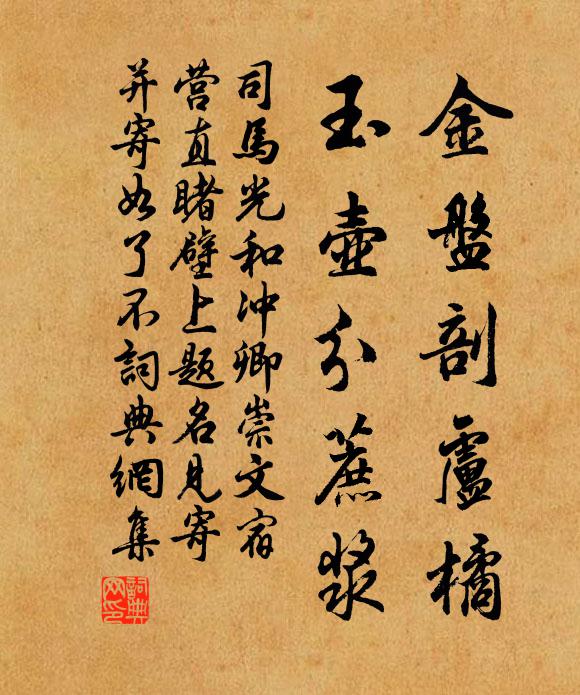 金盤剖盧橘
玉壺分蔗漿
司馬光和沖卿崇文宿
营直睹壁上題名見寄
并寄如了不詞典網集
詞典
网印